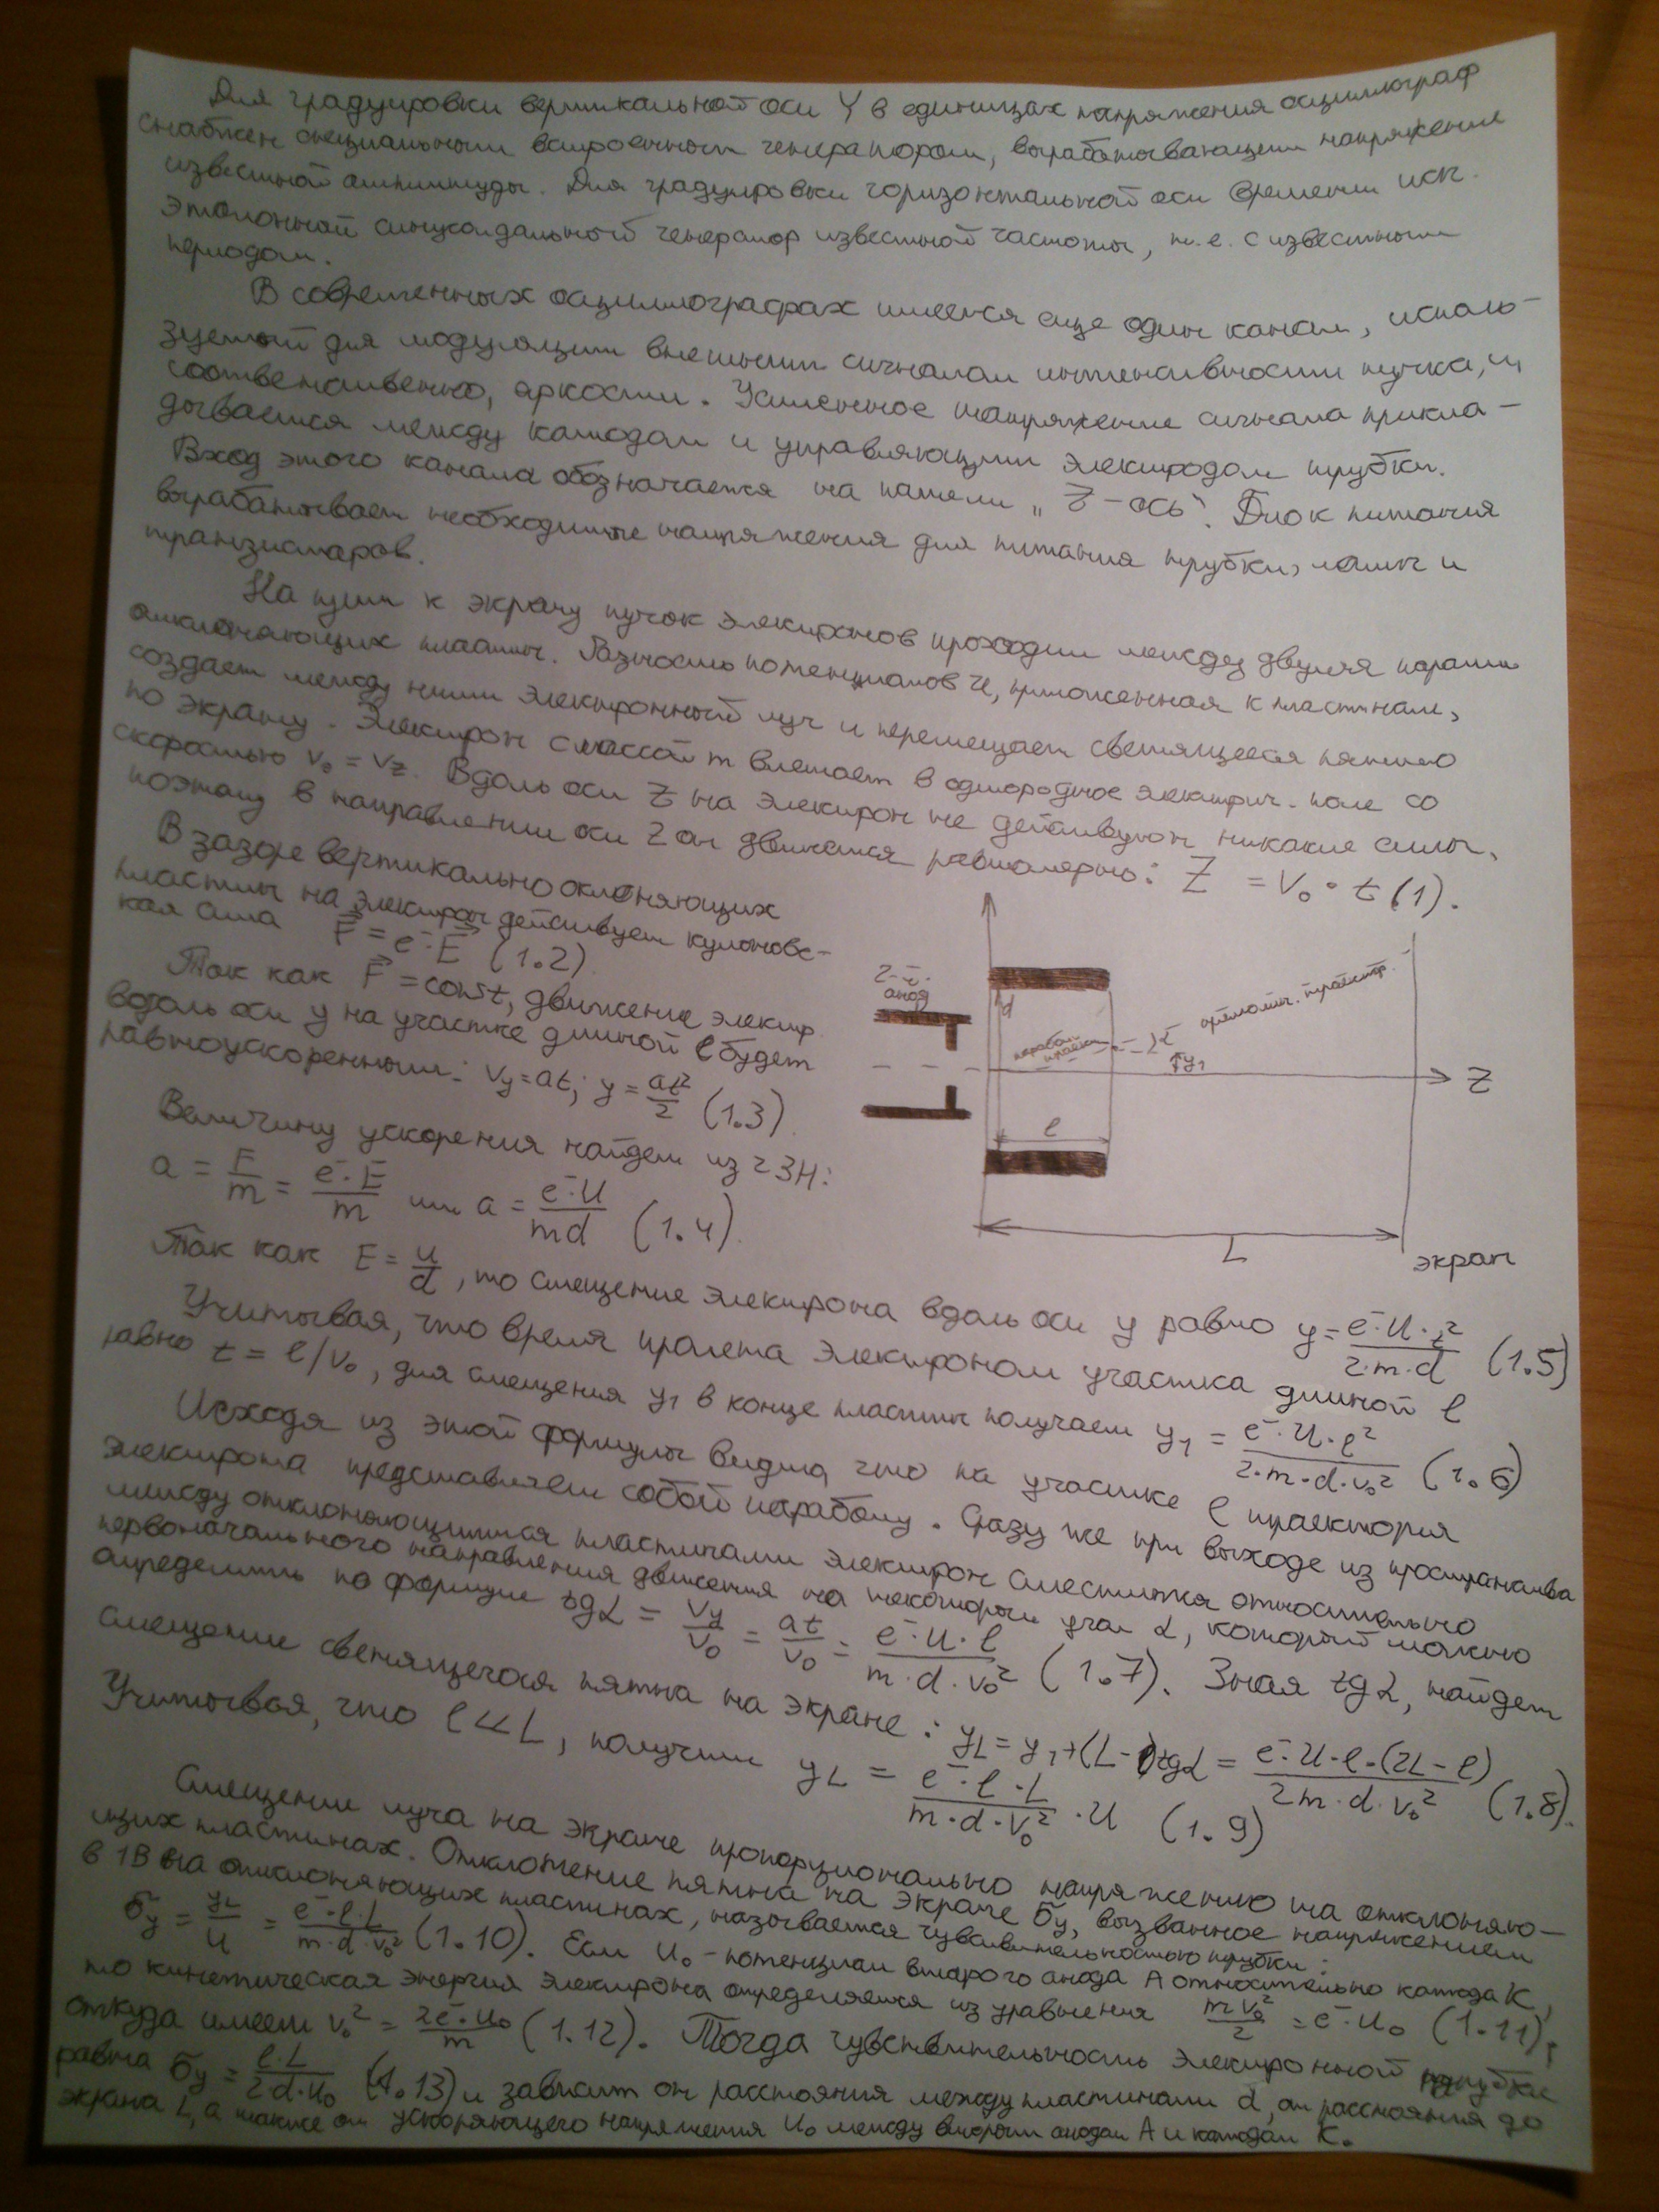 Для градуировки вертикальной оси Y в единицах напряжения осциллограф
снабжен специальным встроенным генератором, вырабатывающим напряжение
известной амплитуды. Для градуировки горизонтальной оси времени исп.
эталонный синусоидальный генератор известной частоты, т.е. с известным
периодом.
В современных осциллографах имеется еще один канал, исполь-
зуемый для модуляции внешним сигналом интенсивности пучка, и,
соответственно, яркости. Усиленное напряжение сигнала прикла-
дывается между катодом и управляющим электродом трубки.
Вход этого канала обозначается на панели „Z-ось“. Блок питания
вырабатывает необходимые напряжения для питания трубки, ламп и
транзисторов.
На пути к экрану пучок электронов проходит между двумя парами
отклоняющих пластин. Разность потенциалов U, приложенная к пластинам,
создает между ними электронный луч и перемещает светящееся пятно
по экрану. Электрон с массой m влетает в однородное электрич. поле со
скоростью v₀ = vz. Вдоль оси Z на электрон не действуют никакие силы,
поэтому в направлении оси Z он движется равномерно: Z = V₀ · t (1).
В зазоре вертикально отклоняющих
пластин на электрон действует кулоновс-
кая сила F⃗ = e⁻·E⃗ (1.2)
Так как F⃗ = const, движение электр.
вдоль оси y на участке длиной l будет
равноускоренным: Vy = at; y = at²/2 (1.3)
Величину ускорения найдем из 2ЗН:
a = F/m = e⁻·E/m или a = e⁻·U/md (1.4).
2-й
анод
d
парабол.
траект.
α
y₁
прямолин. траектор.
Z
l
L
экран
Так как E = U/d, то смещение электрона вдоль оси y равно y = e⁻·U·t²/2·m·d (1.5)
Учитывая, что время пролета электроном участка длиной l
равно t = l/v₀, для смещения y₁ в конце пластин получаем y₁ = e⁻·U·l²/2·m·d·v₀² (1.6)
Исходя из этой формулы видно, что на участке l траектория
электрона представляет собой параболу. Сразу же при выходе из пространства
между отклоняющимися пластинами электрон сместится относительно
первоначального направления движения на некоторый угол α, который можно
определить по формуле tgα = Vy/V₀ = at/v₀ = e⁻·U·l/m·d·v₀² (1.7). Зная tgα, найдем
смещение светящегося пятна на экране: yL = y₁+(L-l)tgα = e⁻·U·l·(2L-l)/2m·d·v₀² (1.8).
Учитывая, что l<<L, получим yL = e⁻·l·L/m·d·V₀² · U (1.9)
Смещение луча на экране пропорционально напряжению на отклоняю-
щих пластинах. Отклонение пятна на экране σy, вызванное напряжением
в 1В на отклоняющих пластинах, называется чувствительностью трубки:
σy = yL/U = e⁻·l·L/m·d·v₀² (1.10). Если U₀ - потенциал второго анода A относительно катода K,
то кинетическая энергия электрона определяется из уравнения mv₀²/2 = e⁻·U₀ (1.11),
откуда имеем v₀² = 2e⁻·U₀/m (1.12). Тогда чувствительность электронной трубки
равна σy = l·L/2·d·U₀ (1.13) и зависит от расстояния между пластинами d, от расстояния до
экрана L, а также от ускоряющего напряжения U₀ между вторым анодом A и катодом K.